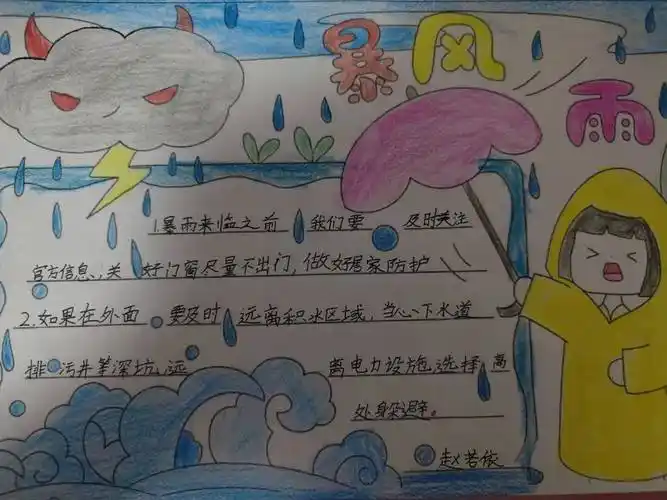 暴风雨
1.暴雨来临之前 我们要 及时关注
官方信息,关 好门窗尽量不出门,做好居家防护
2.如果在外面 要及时 远离积水区域,当心下水道
排 污井等深坑,远 离电力设施,选择 高
处躲避。
赵若依